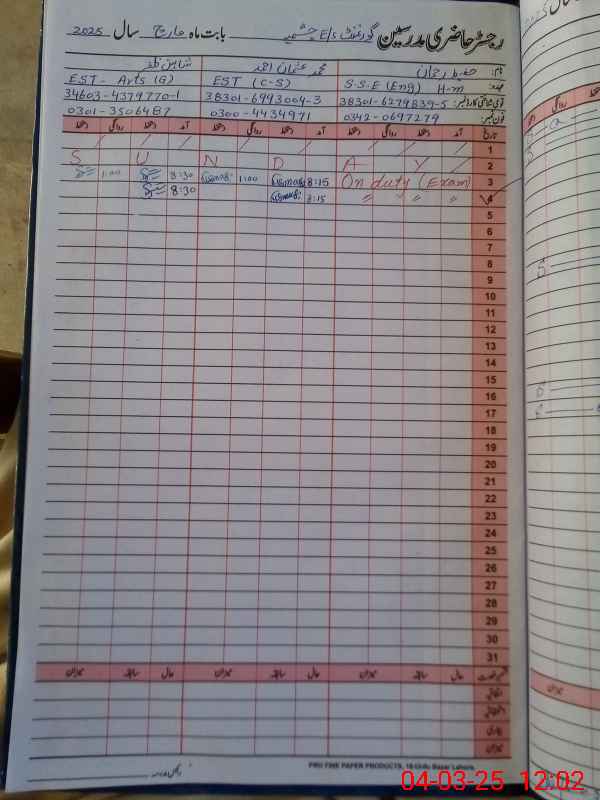 رجسٹر حاضری مدرسین گورنمنٹ E/S چشمیہ بابت ماہ مارچ سال 2025
نام: حفیظ رحمان محمد عثمان احمد
عہدہ: S.S.E (Eng) H-m EST (C-S) EST - Arts (G)
قومی شناختی کارڈ نمبر: 38301-6279839-5 38301-6993004-3 34603-4379770-1
فون نمبر: 0342-0697279 0300-4434971 0301-3506487
تاریخ آمد دستخط روانگی دستخط آمد دستخط روانگی دستخط آمد دستخط روانگی دستخط
1
S U N D A Y 2
1:00 8:30 1:00 8:15 On duty (Exam) 3
8:30 8:15 〃 〃 〃 4
5
6
7
8
9
10
11
12
13
14
15
16
17
18
19
20
21
22
23
24
25
26
27
28
29
30
31
حال سابقہ میزان حال سابقہ میزان حال سابقہ میزان
اتفاقیہ
بیماری
میزان
PRO FINE PAPER PRODUCTS, 16-Urdu Bazar Lahore.
04-03-25 12:02